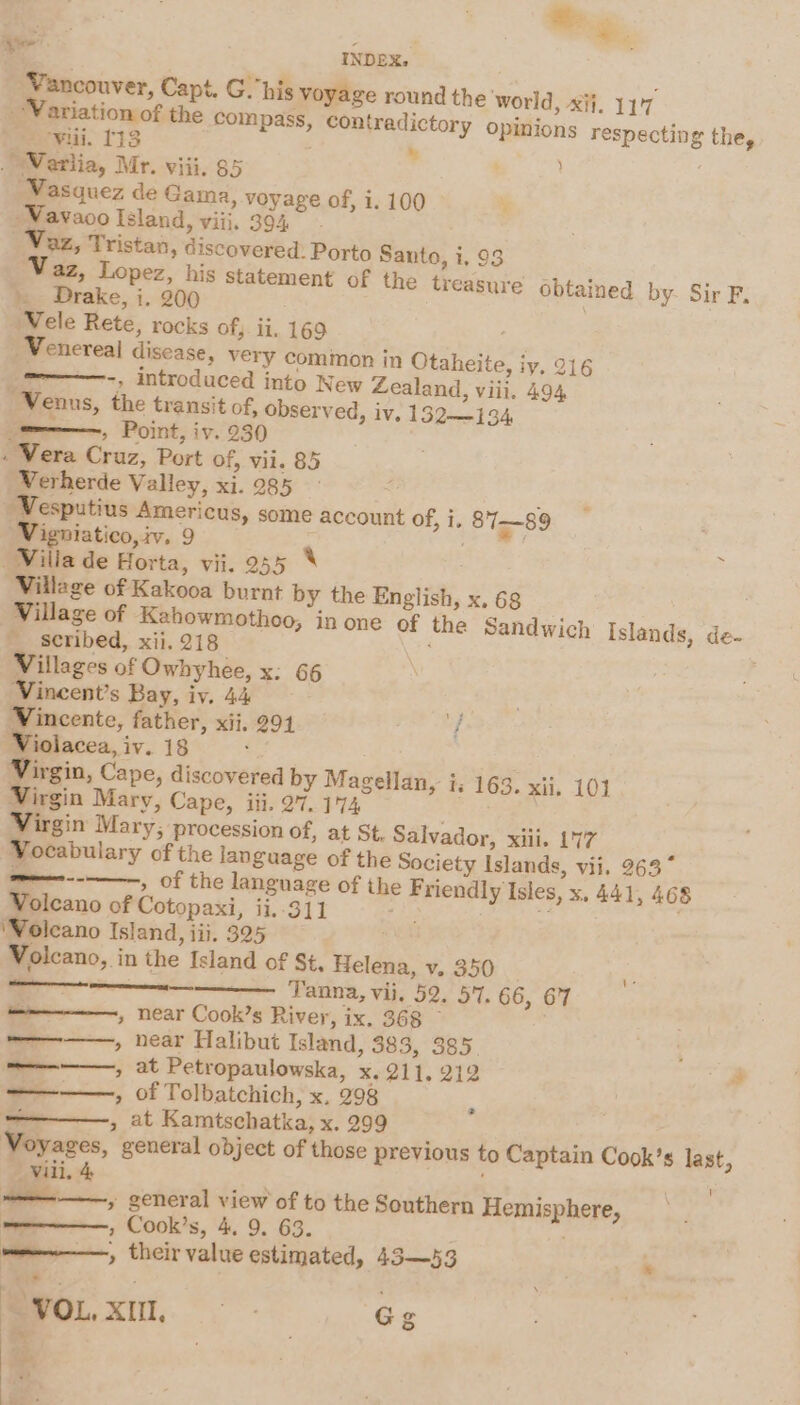 INDEX.
Vancouver, Capt. G. his voyage round the world, xii. 117
Variation of the compass, contradictory opinions respecting the,
viii. 113
Varlia, Mr. viii. 85
Vasquez de Gama, voyage of, i. 100
Vavaoo Island, viii. 394
Vaz, Tristan, discovered Porto Santo, i. 93
Vaz, Lopez, his statement of the treasure obtained by Sir F.
Drake, i. 200
Vele Rete, rocks of, ii. 169
Venereal disease, very common in Otaheite, iv. 216
———-, introduced into New Zealand, viii. 494
Venus, the transit of, observed, iv. 132—134
———, Point, iv. 230
Vera Cruz, Port of, vii. 85
Verherde Valley, xi. 285
Vesputius Americus, some account of, i. 87—89
Vigniatico, iv. 9
Villa de Horta, vii. 255
Village of Kakooa burnt by the English, x. 68
Village of Kahowmothoo, in one of the Sandwich Islands, de-
scribed, xii. 218
Villages of Owhyhee, x. 66
Vincent's Bay, iv. 44
Vincente, father, xii. 291
Violacea, iv. 18
Virgin, Cape, discovered by Magellan, i. 163. xii. 101
Virgin Mary, Cape, iii. 27. 174
Virgin Mary, procession of, at St. Salvador, xiii. 177
Vocabulary of the language of the Society Islands, vii. 263
———, of the language of the Friendly Isles, x. 441, 468
Volcano of Cotopaxi, ii. 311
Volcano Island, iii. 325
Volcano, in the Island of St. Helena, v. 350
——— Tanna, vii. 52. 57. 66, 67
———, near Cook's River, ix. 368
———, near Halibut Island, 383, 385
———, at Petropaulowska, x. 211. 212
———, of Tolbatchich, x. 298
———, at Kamtschatka, x. 299
Voyages, general object of those previous to Captain Cook's last,
viii. 4
———, general view of to the Southern Hemisphere,
———, Cook's, 4. 9. 63.
———, their value estimated, 43—53
VOL. XIII. G g